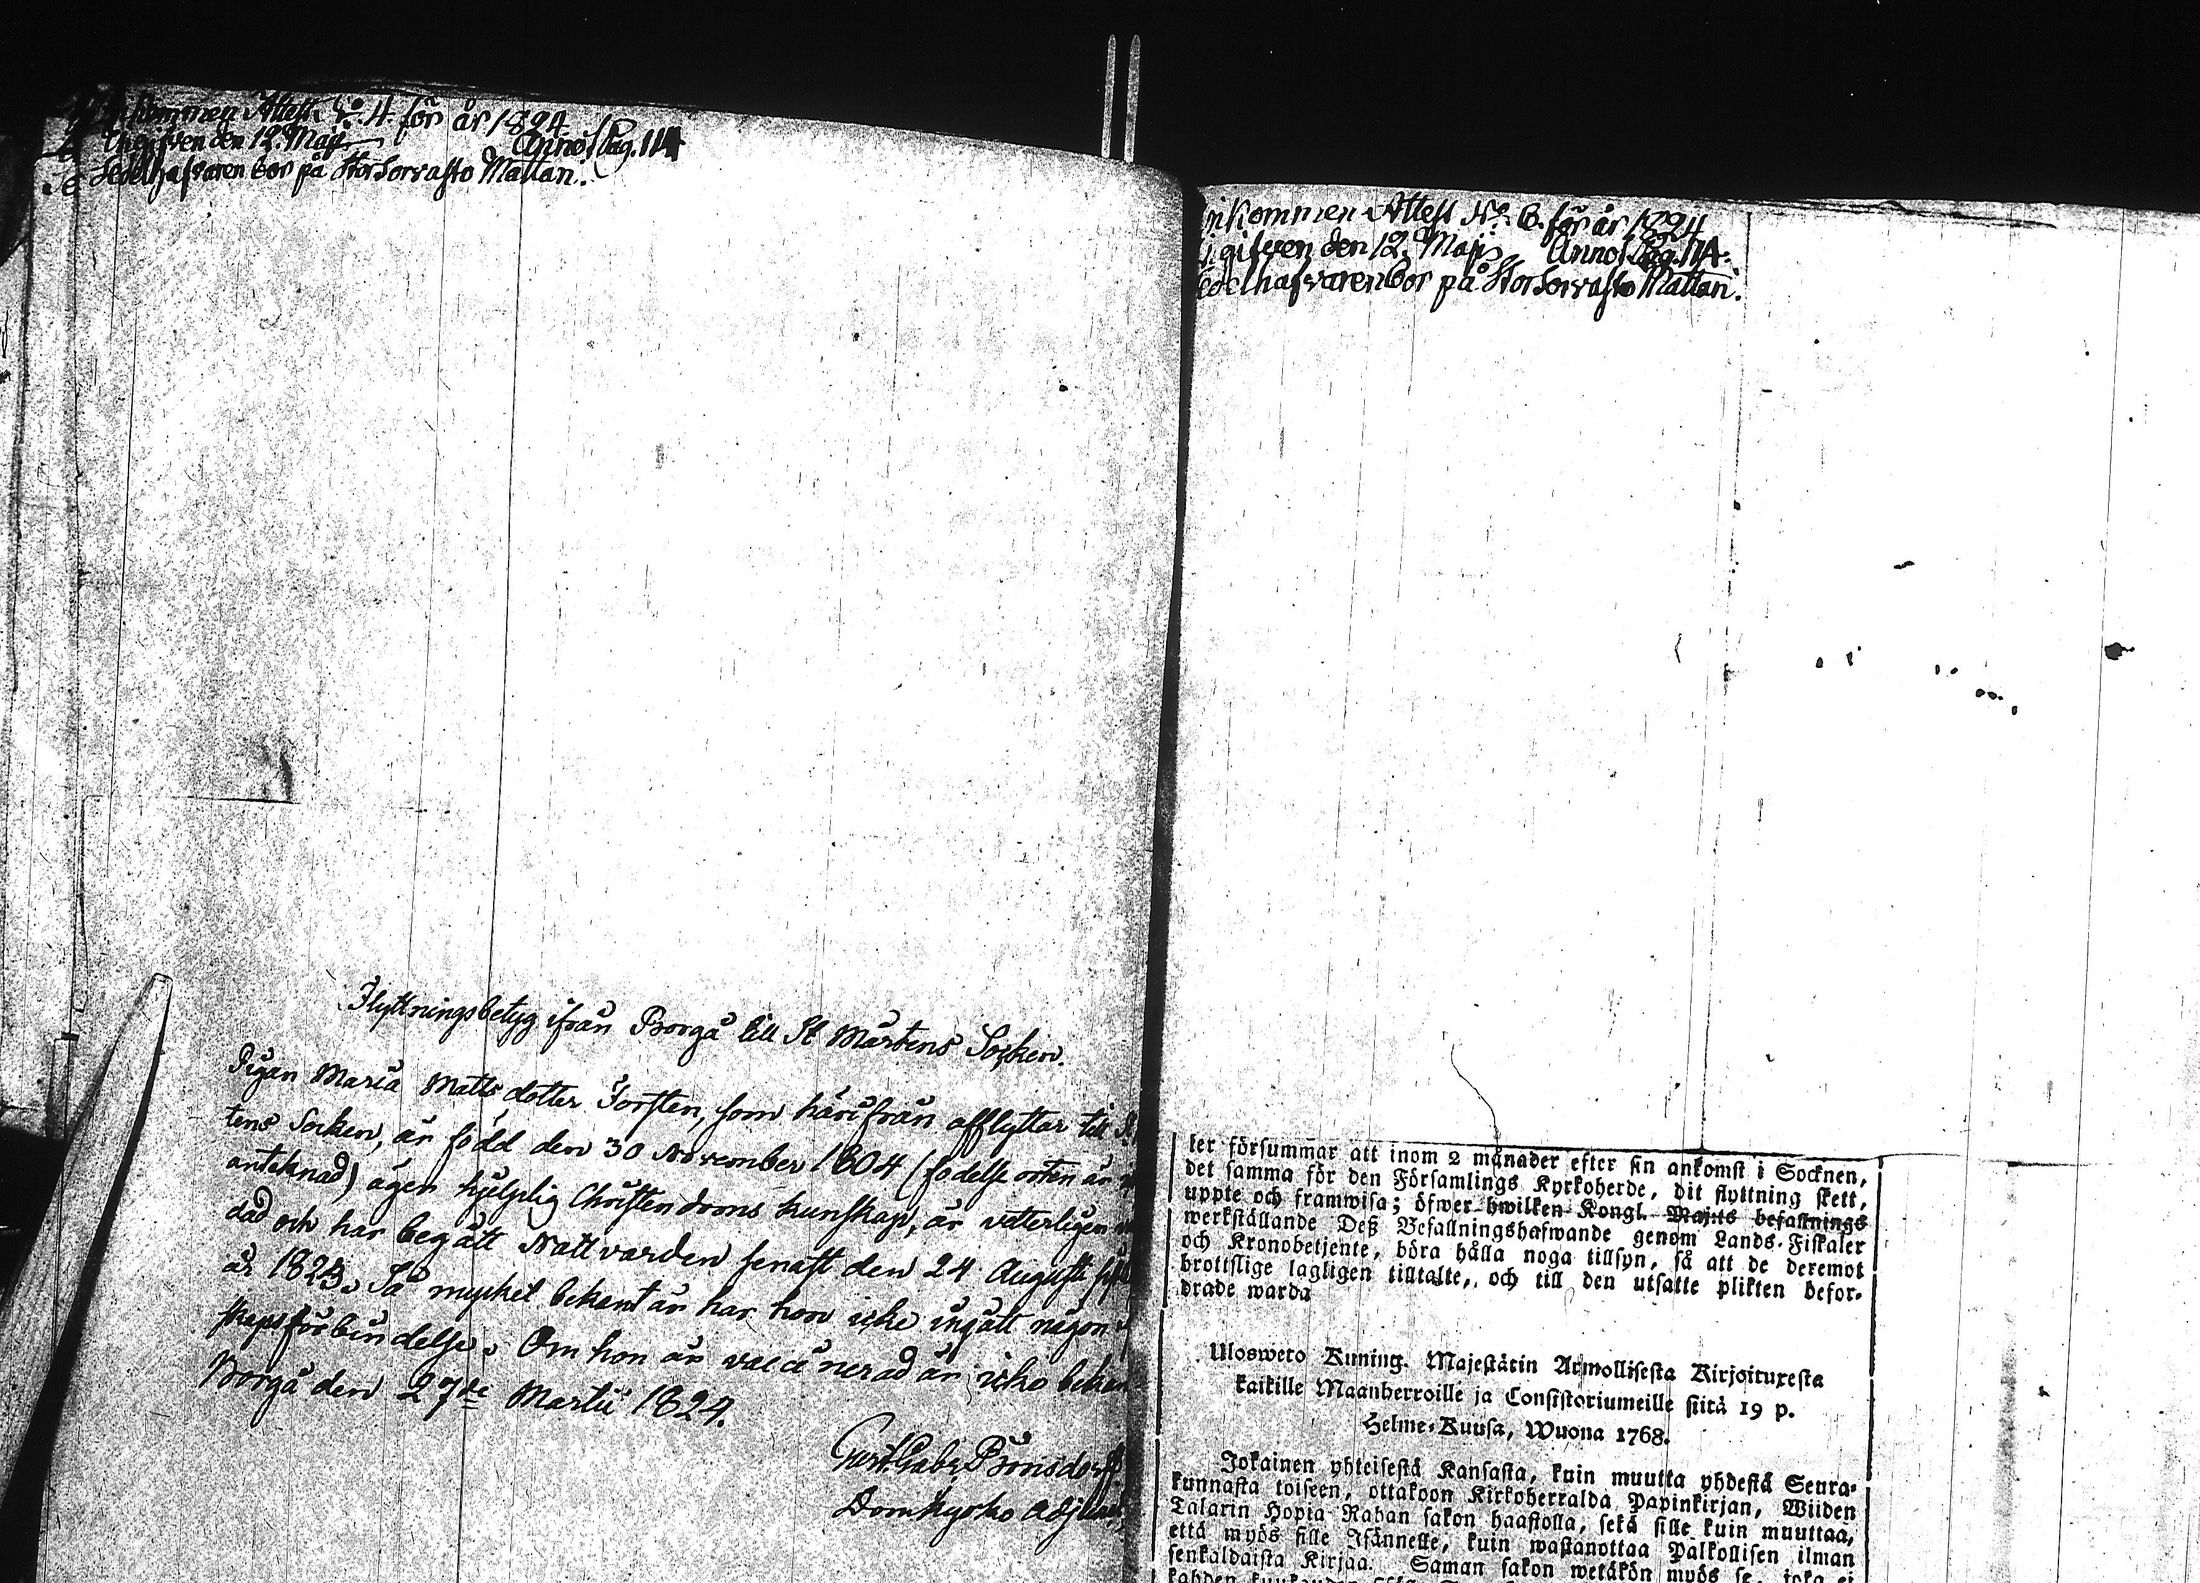 kommen Attest No 4. för år 1824.
Utgifven den 12. Maji Annot. Pag. 114
Sedelhafvaren bor på Storsorvasto Mattari.
Flyttningsbetyg ifrån Borgå till St Mårtens Socken.
Pigan Maria Mattsdotter Forsten, som härifrån afflyttar till
tens Socken, är född den 30 November 1804 (födelse orten är
anteknad) äger hjelplig Christendoms kunskap, är veterligen
dad och har begått Nattvarden senast den 24 Augusti
år 1823. Så mycket bekant är har hon icke ingått någon
skapsförbindelse. Om hon är vaccinerad är icke bekan
Borgå den 27de Martii 1824.
Gust. Gabr. Bonsdorff
Domkyrko Adjunct
inkommen Attest No. 6. för år 1824
gifven den 12. Maji Annot. Pag. 114.
edelhafvaren bor på Storsorvasto Mattari.
ler försummar att inom 2 månader efter sin ankomst i Socknen,
det samma för den Församlings Kyrkoherde, dit flyttning skett,
uppte och framwisa; öfwer hwilken Kongl. Maj:ts befallnings
werkställande Deß Befallningshafwande genom Lands-Fiskaler
och Kronobetjente, böra hålla noga tillsyn, så att de deremot
brottslige lagligen tilltalte, och till den utsatte plikten befor-
drade warda
Ulosweto Kuning. Majestätin Armollisesta Kirjoituxesta
kaikille Maanherroille ja Consistoriumeille siitä 19 p.
Helme-Kuusa, Wuona 1768.
Jokainen yhteisestä Kansasta, kuin muutta yhdestä Seura-
kunnasta toiseen, ottakoon Kirkoherralda Papinkirjan, Wiiden
Talarin Hopia Rahan sakon haastolla, sekä sille kuin muuttaa,
että myös sille Isännelle, kuin wastanottaa Palkollisen ilman
senkaldaista Kirjaa. Saman sakon wetäkön myös se, joka ei